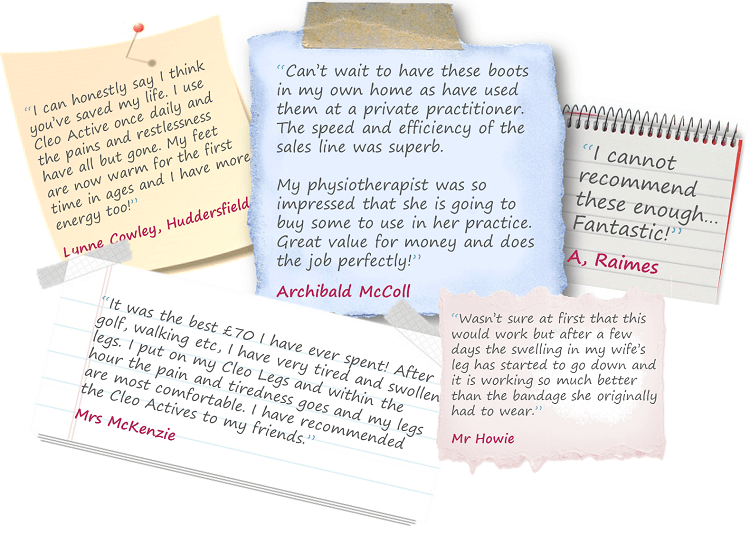 “I can honestly say I think
you’ve saved my life. I use
Cleo Active once daily and
the pains and restlessness
have all but gone. My feet
are now warm for the first
time in ages and I have more
energy too!”
Lynne Cowley, Huddersfield
“Can’t wait to have these boots
in my own home as have used
them at a private practitioner.
The speed and efficiency of the
sales line was superb.
My physiotherapist was so
impressed that she is going to
buy some to use in her practice.
Great value for money and does
the job perfectly!”
Archibald McColl
“I cannot
recommend
these enough...
Fantastic!”
A, Raimes
“It was the best £70 I have ever spent! After
golf, walking etc, I have very tired and swollen
legs. I put on my Cleo Legs and within the
hour the pain and tiredness goes and my legs
are most comfortable. I have recommended
the Cleo Actives to my friends.”
Mrs McKenzie
“Wasn’t sure at first that this
would work but after a few
days the swelling in my wife’s
leg has started to go down and
it is working so much better
than the bandage she originally
had to wear.”
Mr Howie